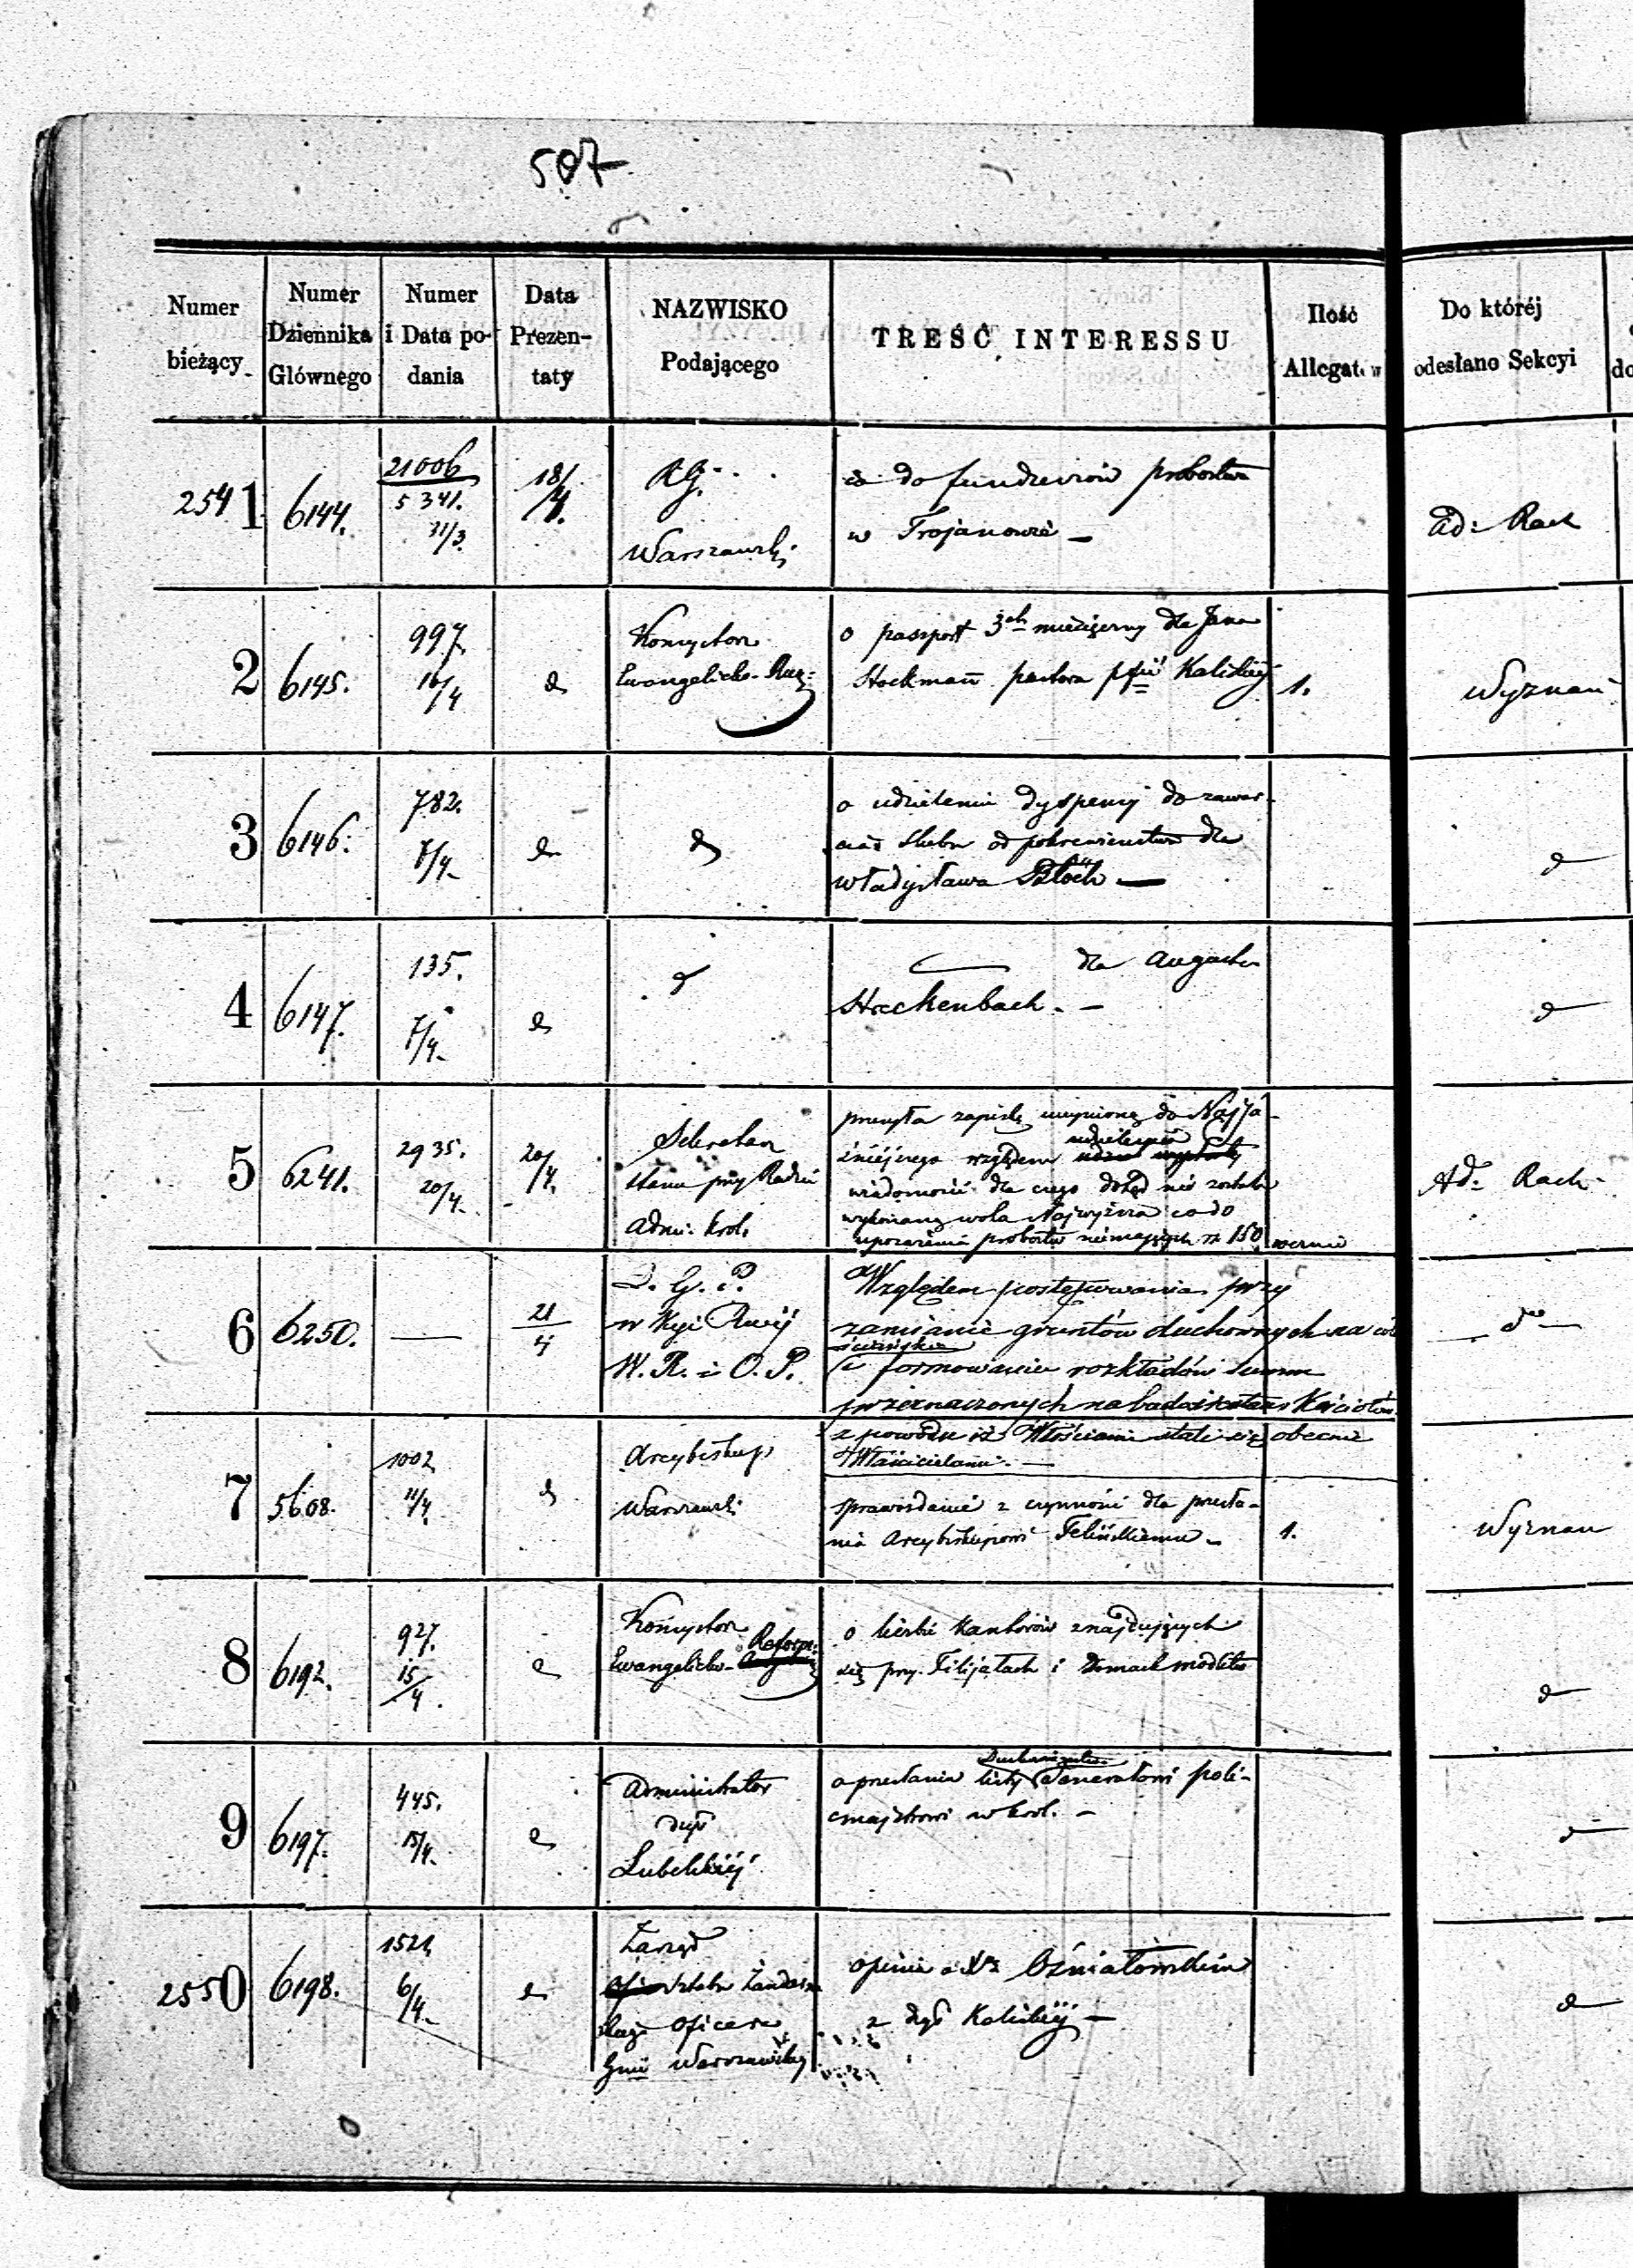 507
Numer bieżący
Numer Dziennika Głównego
Numer i Data podania
Data Prezentaty
NAZWISKO Podającego
TREŚĆ INTERESSU
Ilość Allegatów
Do któréj odesłano Sekcyi
2541
6144.
21006
5341.
31/3.
18/4.
R.G.
Warszawski
co do funduszów probostwa
w Trojanowie —
Ad: Rach
2
6145.
997
16/4
d
Konsystorz
Ewangelicko-Aug:
o passport 3ch miesięczny dla Jana
Stockmann pastora pfii Kaliskiej
1.
Wyznań
3
6146.
782.
7/4.
d
d
o udzielenie dyspensy do zawar-
cia ślubu od pokrewieństwa dla
Władysława Bloch —
d
4
6147.
135.
7/4.
d
d
dla Augusta
Steckenbach. —
d
5
6241.
2935.
20/4.
20/4.
Sekretarz
Stanu przy Radzie
Admi: Król.
przesyła zapiskę uczynioną do Najja-
śniejszego względem
udzielenia
wiadomości dla czego dotąd nie została
wykonaną wola Najwyższa co do
uposażenia probostw niemających rs 150
6
6250.
—
21/4
D. G. P.
w Kyi Rząij
W. R. i O. P.
Względem postępowania przy
zamianie gruntów duchownych na wło
ściańskie
i formowaniu rozkładów summ
przeznaczonych na Kościołów
z powodu iż Włościanie stali się obecnie
Właścicielami. —
do
7
5608.
1002
11/4
d
Arcybiskup
Warszawski
sprawozdanie z czynności dla przesła-
nia Arcybiskupowi Felińskiemu —
1.
Wyznań
8
6192.
927.
15/4.
d
Konsystorz
Ewangelicko- Reform:
o liczbie Kantorów znajdujących
się przy Filijałach i domach modlitw
d
9
6197.
445.
15/4.
d
Administrator
dyi
Lubelskiej
o przesłanie listy Duchowieństwa Generałowi poli-
cmajstrowi w Król. —
d
2550
6198.
1521
6/4.
d
Zarząd
Sztabu Żandarm
Oficera
Gnii Warszawskiej
opinia o Xdz Oźniatowskim
z dyi Kaliskiej —
d